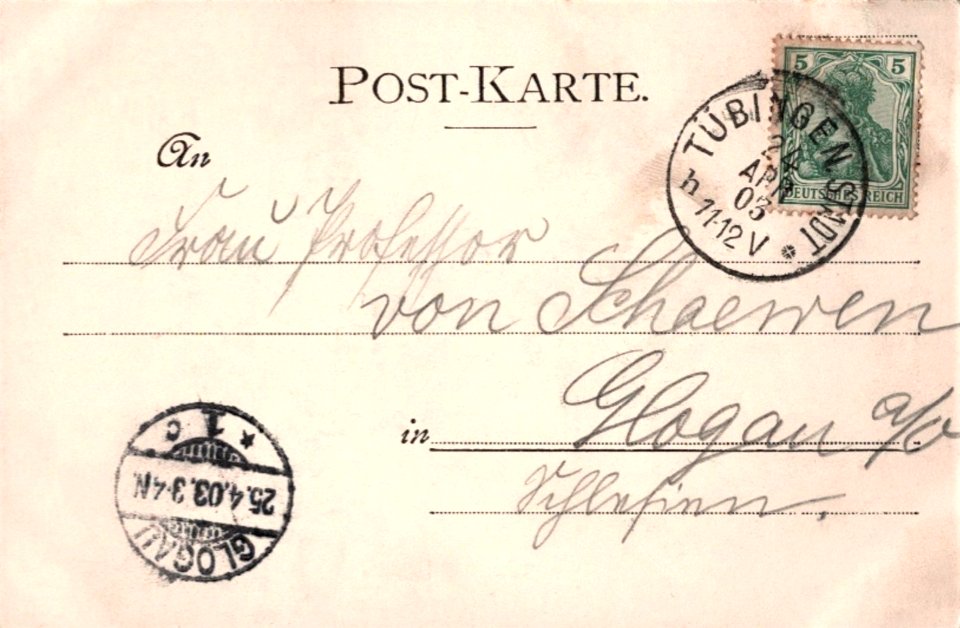 POST-KARTE.
5 5
DEUTSCHES REICH
TÜBINGEN STADT
24
APR
03
h 11-12 V
An
Frau Professor
von Schaewen
in Glogau a/O
Schlesien.
* 1 c
25.4.03.3-4N.
GLOGAU